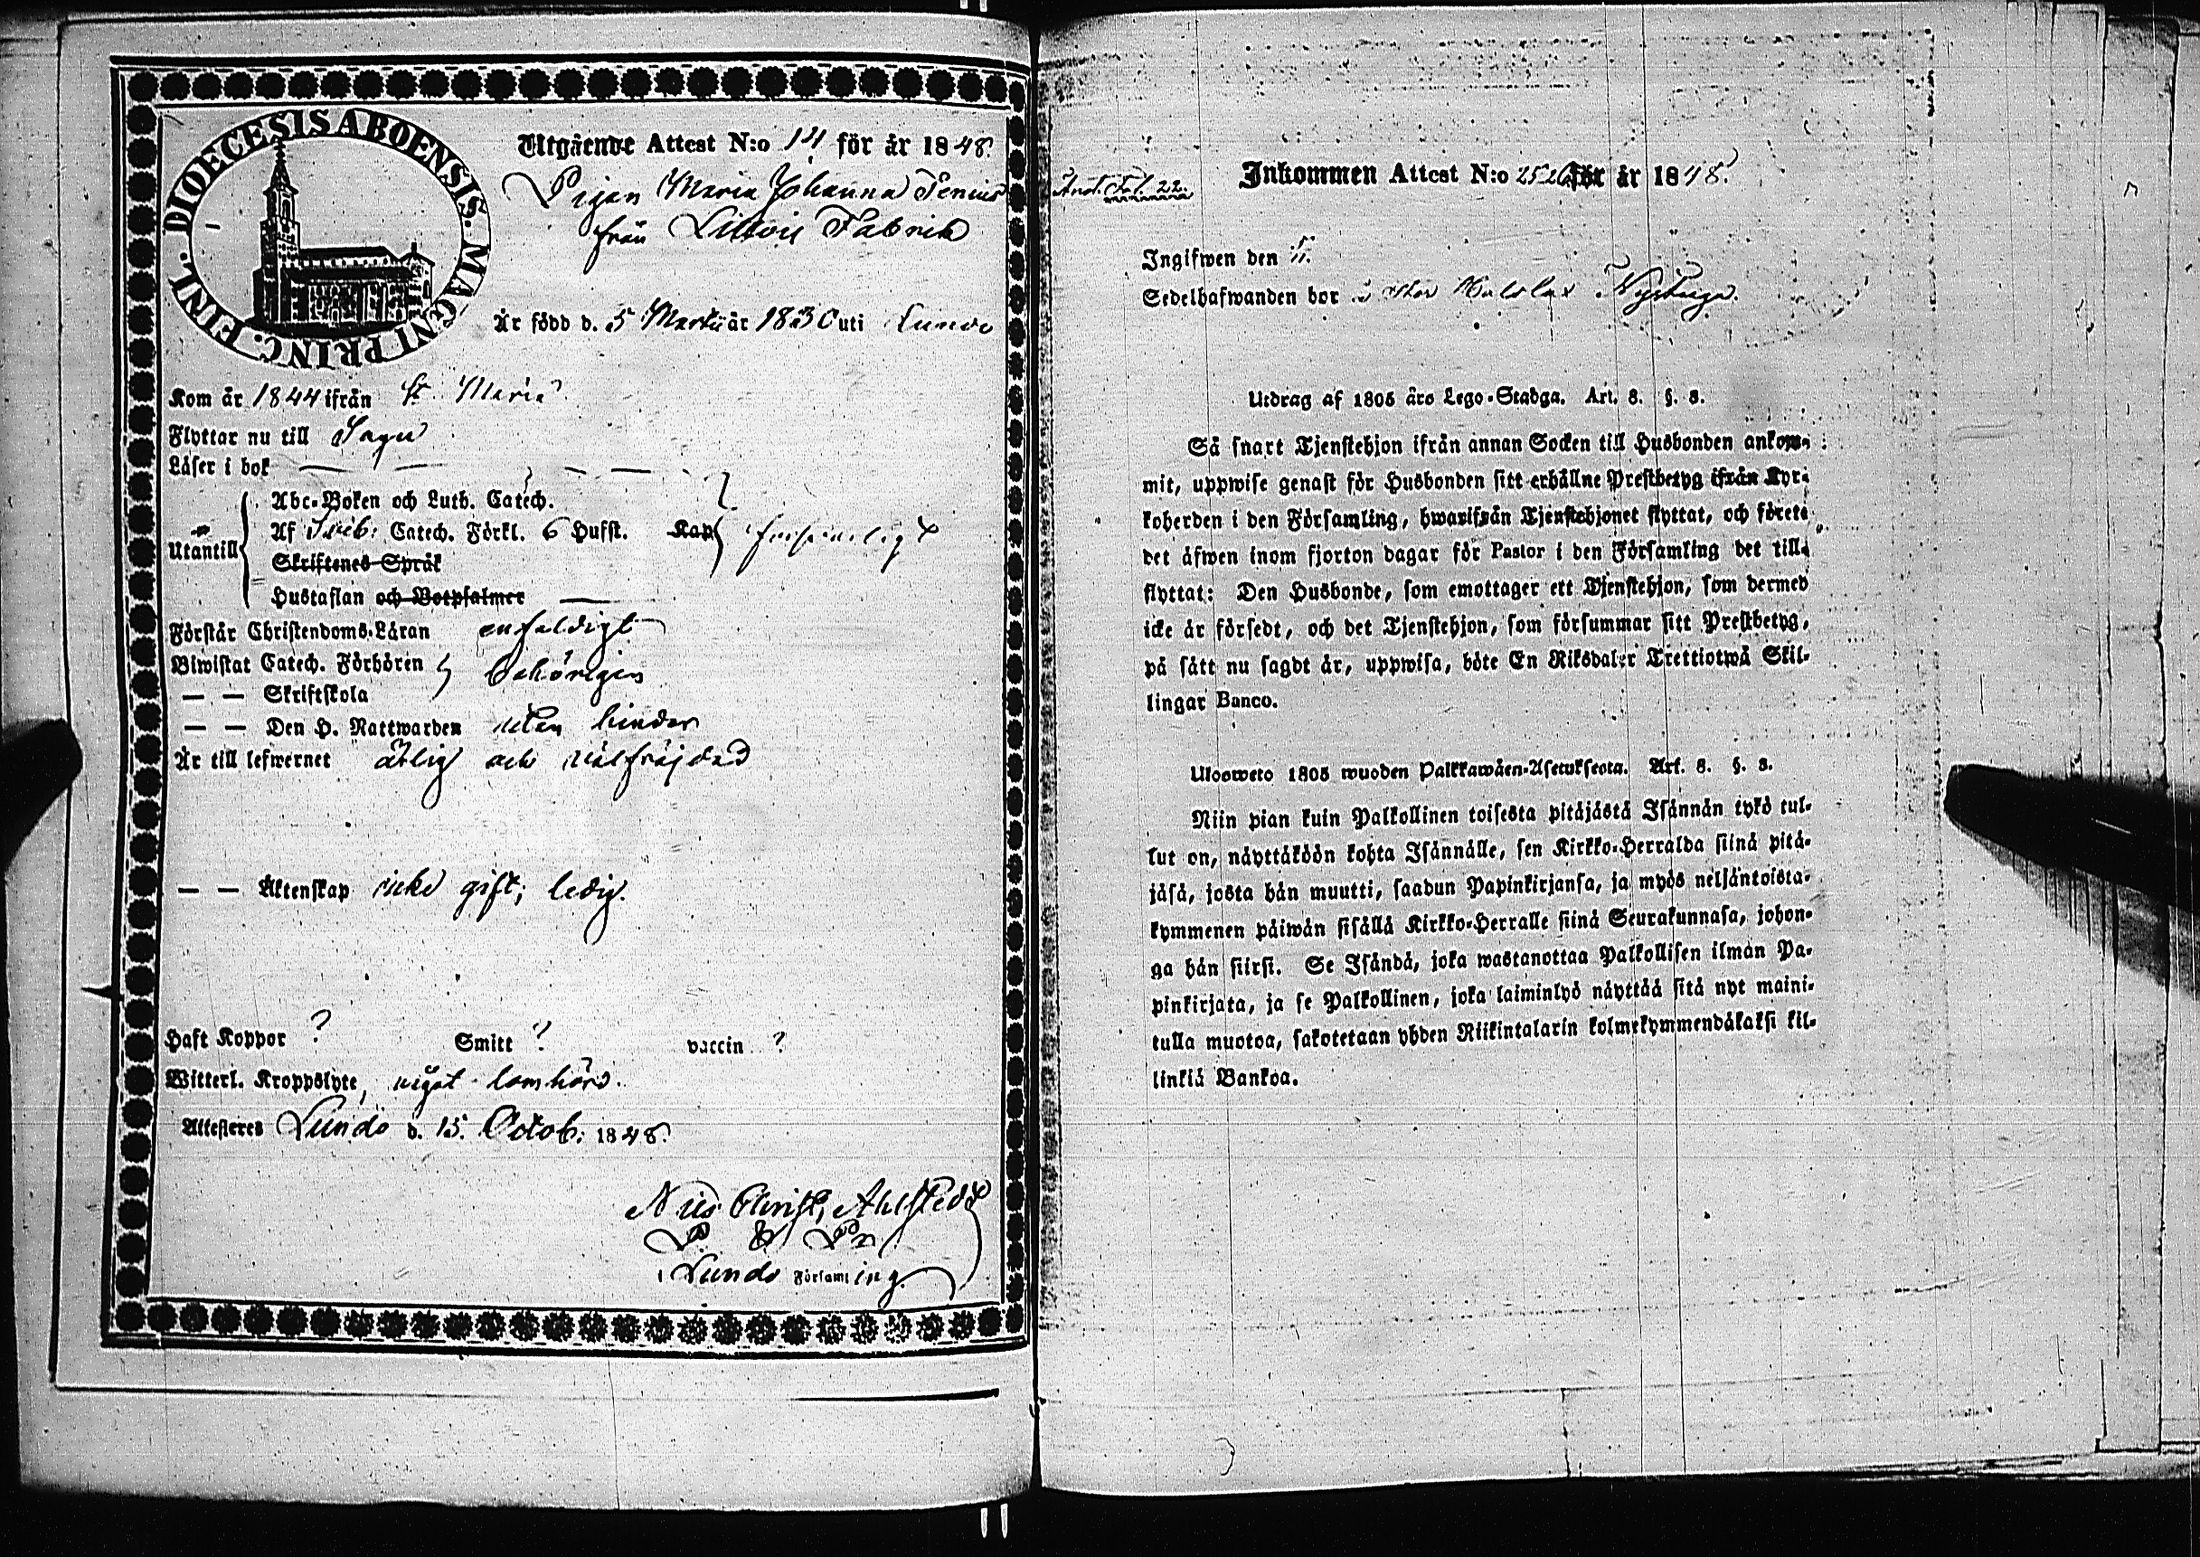 DIOECESIS ABOENSIS. MAGNI PRINC. FINL.
Utgående Attest N:o 14 för år 1848.
Pigan Maria Johanna Tenius
från Littois Fabrik
Är född d. 5 Martii år 1830 uti Lundo
Kom år 1844 ifrån St. Marie
Flyttar nu till Sagu
Läser i bok — — — — —
Utantill
Abc-Boken och Luth. Catech.
Af Sveb: Catech. Förkl. 6 Hufst. Kap
Skriftenes Språk
Hustaflan och Botpsalmer —
Förstår Christendoms-Läran enfaldigt
Biwistat Catech. Förhören
behörigen
— — Skriftskola
— — Den H. Nattwarden utan hinder
Är till lefwernet ärlig och välfräjdad
— — Äktenskap icke gift; ledig.
Haft Koppor ? Smitt ? vaccin ?
Witterl. Kroppslyte, något lomhörd.
Attesteres Lundo d. 15. Octob: 1848.
Nils Christ. Ahlstedt
P. & Pr
i Lundo Församling.
Fol. 22.
Inkommen Attest N:o för år 1848.
Ingifwen den
Sedelhafwanden bor Nystuga.
Utdrag af 1805 års Lego-Stadga. Art. 8. §. 8.
Så snart Tjenstehjon ifrån annan Socken till Husbonden ankom-
mit, uppwise genast för Husbonden sitt erhållne Prestbetyg ifrån Kyr-
koherden i den Församling, hwarifrån Tjenstehjonet flyttat, och förete
det äfwen inom fjorton dagar för Pastor i den Församling det till-
flyttat: Den Husbonde, som emottager ett Tjenstehjon, som dermed
icke är försedt, och det Tjenstehjon, som försummar sitt Prestbetyg,
på sätt nu sagdt är, uppwisa, böte En Riksdaler Trettiotwå Skil-
lingar Banco.
Uloosweto 1805 wuoden Palkkawäen-Asetuksesta. Art. 8. §. 8.
Niin pian kuin Palkollinen toisesta pitäjästä Isännän tykö tul-
lut on, näyttäköön kohta Isännälle, sen Kirkko-Herralda siinä pitä-
jäsä, josta hän muutti, saadun Papinkirjansa, ja myös neljäntoista-
kymmenen päiwän sisällä Kirkko-Herralle siinä Seurakunnasa, johon-
ga hän siirsi. Se Isändä, joka wastanottaa Palkollisen ilman Pa-
pinkirjata, ja se Palkollinen, joka laiminlyö näyttää sitä nyt maini-
tulla muotoa, sakotetaan yhden Riikintalarin kolmekymmendäkaksi kil-
linkiä Bankoa.